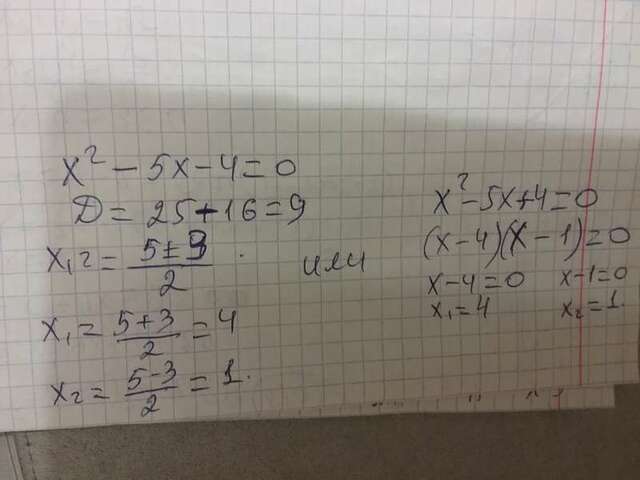 x² - 5x - 4 = 0
D = 25 - 16 = 9
x₁₂ = (5 ± 3)/2
x₁ = (5+3)/2 = 4
x₂ = (5-3)/2 = 1.
или
x² - 5x + 4 = 0
(x - 4)(x - 1) = 0
x - 4 = 0 x - 1 = 0
x₁ = 4 x₂ = 1.